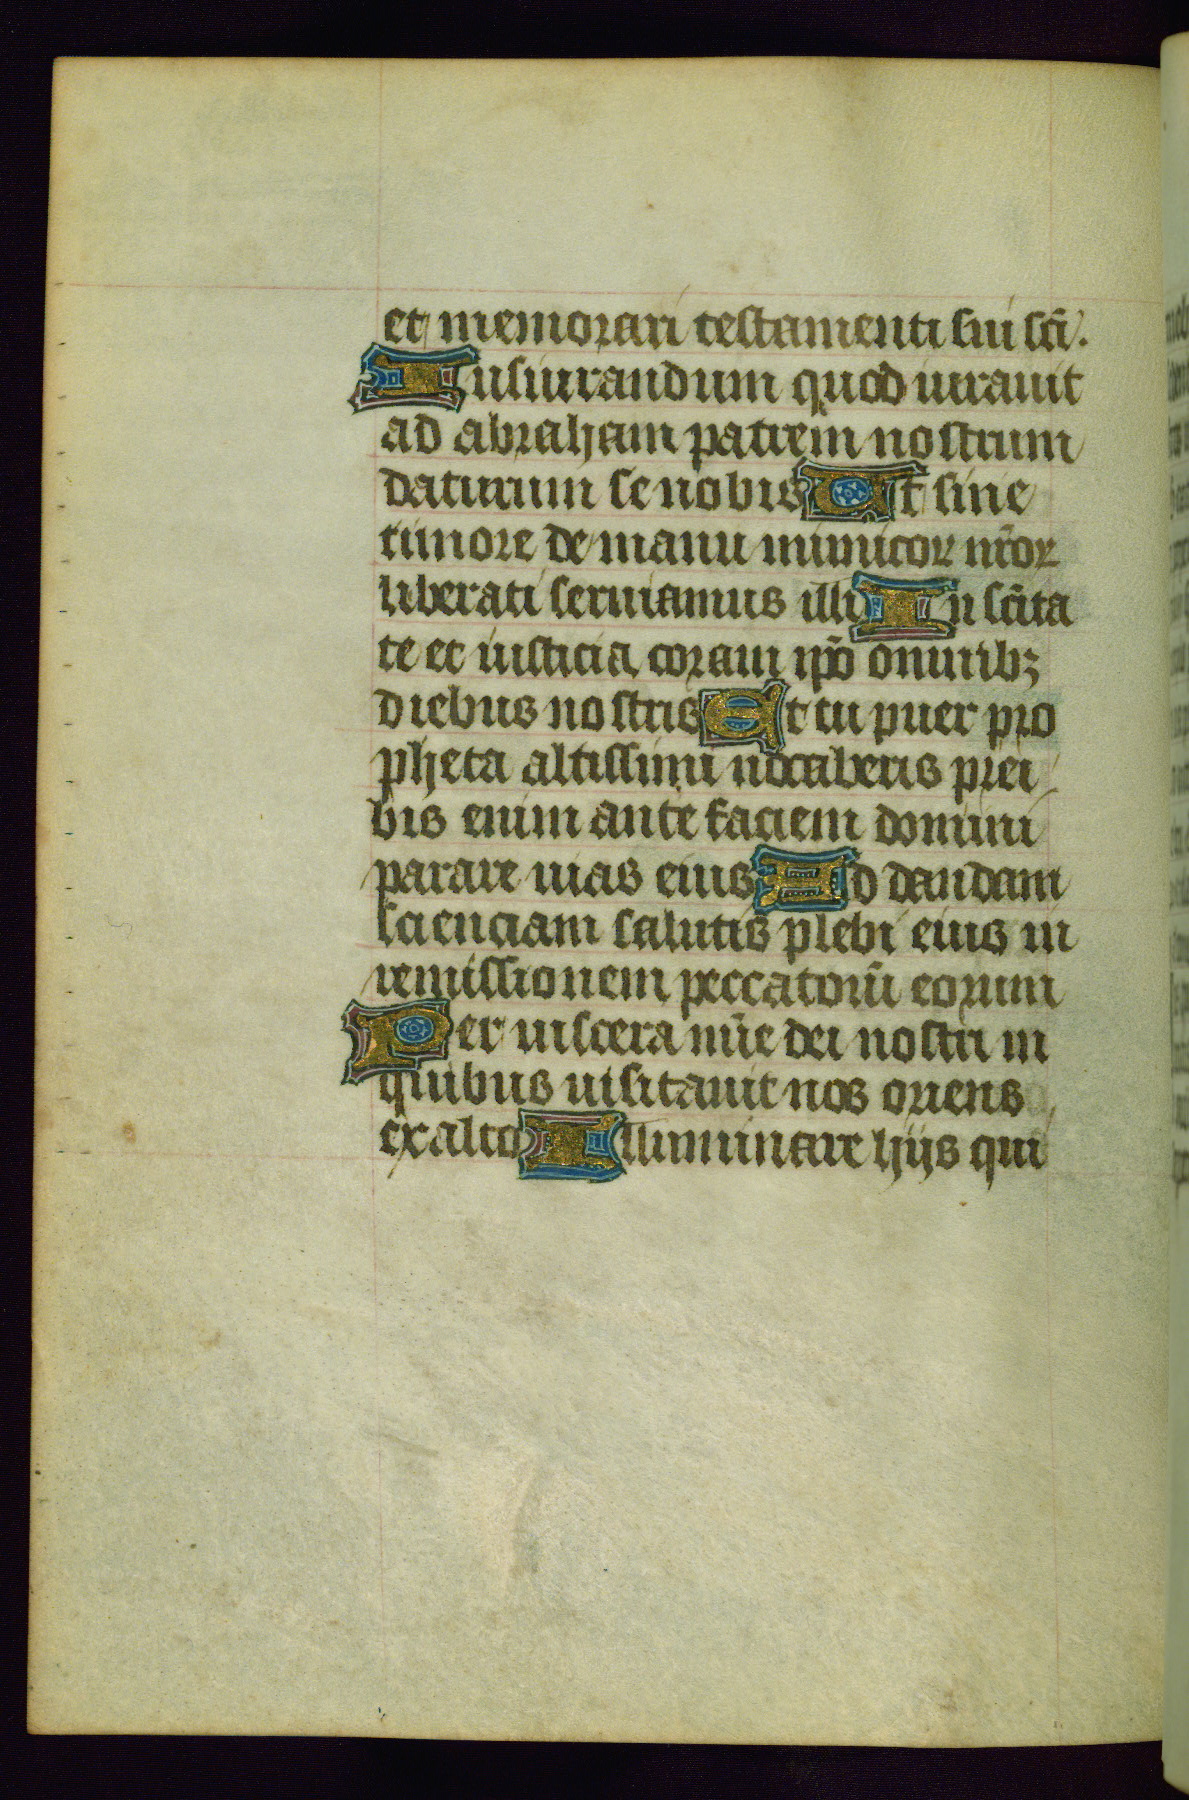 et memorari testamenti sui sc̄i.
Iusiurandum quod iurauit
ad abraham patrem nostrum
daturum se nobis Ut sine
timore de manu inimicoꝝ nr̄oꝝ
liberati seruiamus illi In sc̄ita
te et iusticia coram ip̄o omnibꝫ
diebus nostris Et tu puer pro
pheta altissimi uocaberis prei
bis enim ante faciem domini
parare uias eius Ad dandam
scienciam salutis plebi eius in
remissionem peccatorū eorum
Per uiscera mīe dei nostri in
quibus uisitauit nos oriens
ex alto Illuminare hijs qui